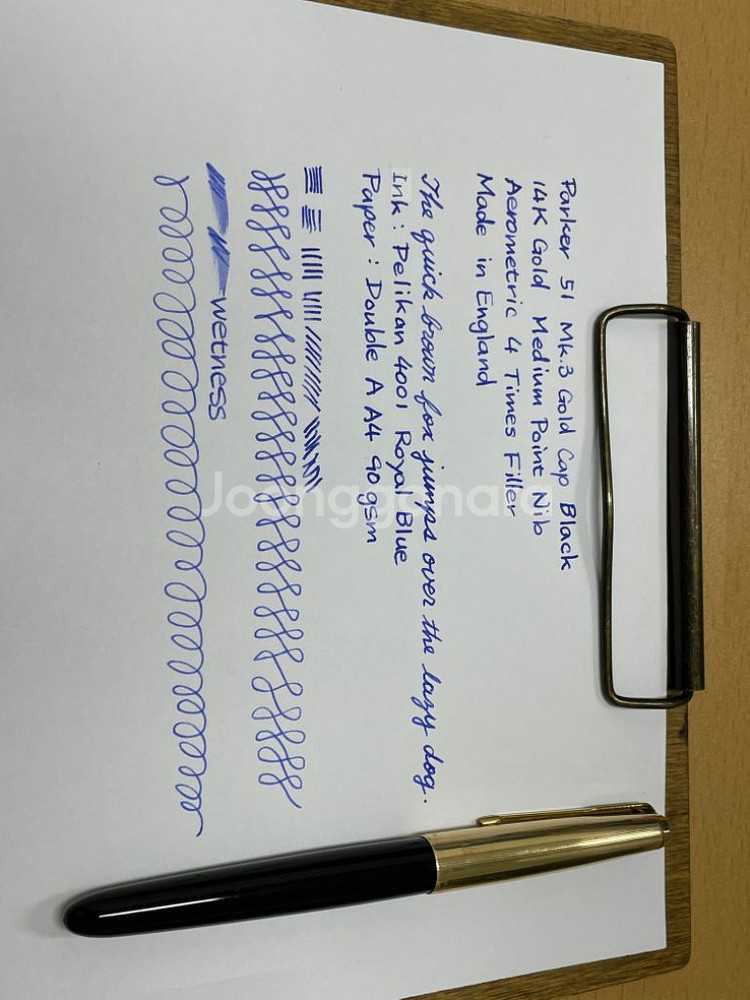 Parker 51 Mk.3 Gold Cap Black
14K Gold Medium Point Nib
Aerometric 4 Times Filler
Made in England
The quick brown fox jumps over the lazy dog.
Ink : Pelikan 4001 Royal Blue
Paper : Double A A4 90 gsm
wetness
Joonggonara